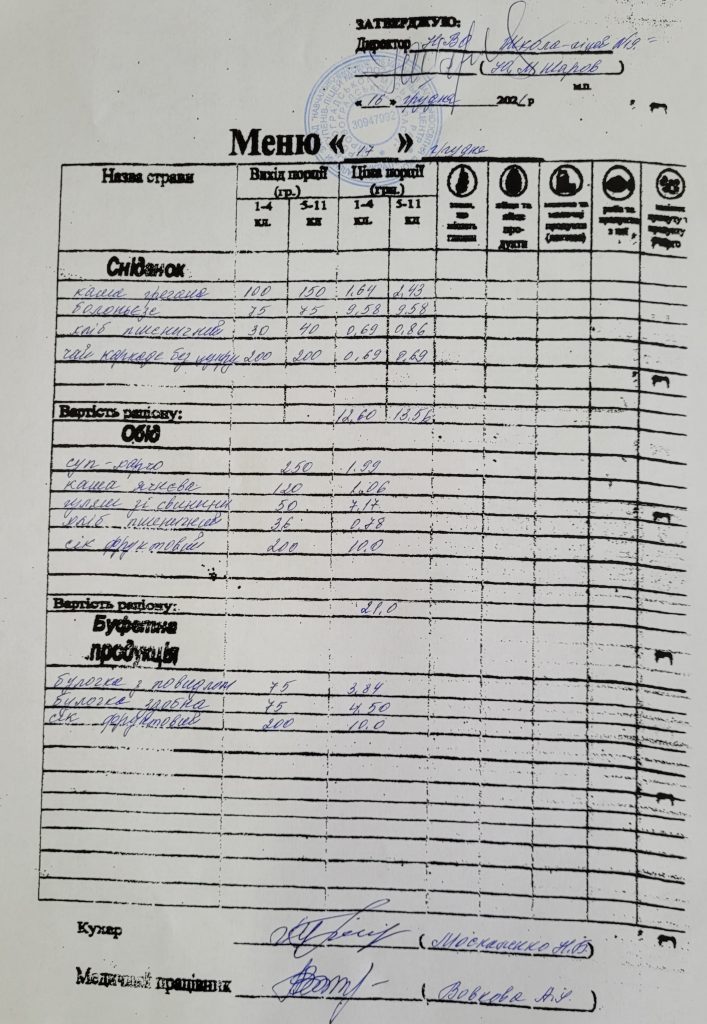 ЗАТВЕРДЖУЮ:
Директор НВО школа-ліцей №19
(Ю.М. Жаров)
м.п.
« 16 » грудня 2021 р
30947992
Меню « 17 » грудня
Назва страви Вихід порції (гр.) Ціна порції (грн.)
1-4 кл. 5-11 кл 1-4 кл. 5-11 кл.
злаки, що містять глютен
яйця та яйце продукти
молоко та молочні продукти (лактоза)
риба та продукти з неї
Сніданок
каша гречана 100 150 1,64 2,43
болоньєзе 75 75 9,58 9,58
хліб пшеничний 30 40 0,69 0,86
чай каркаде без цукру 200 200 0,69 0,69
Вартість раціону: 12,60 13,56
Обід
суп-харчо 250 1.99
каша ячнєва 120 1.06
гуляш зі свинини 50 7,17
хліб пшеничний 36 0,78
сік фруктовий 200 10.0
Вартість раціону: 21,0
Буфетна
продукція
булочка з повидлом 75 3,84
булочка здобна 75 4,50
сік фруктовий 200 10.0
Кухар (Москаленко Н.В)
Медичний працівник (Вовкова А.Я.)